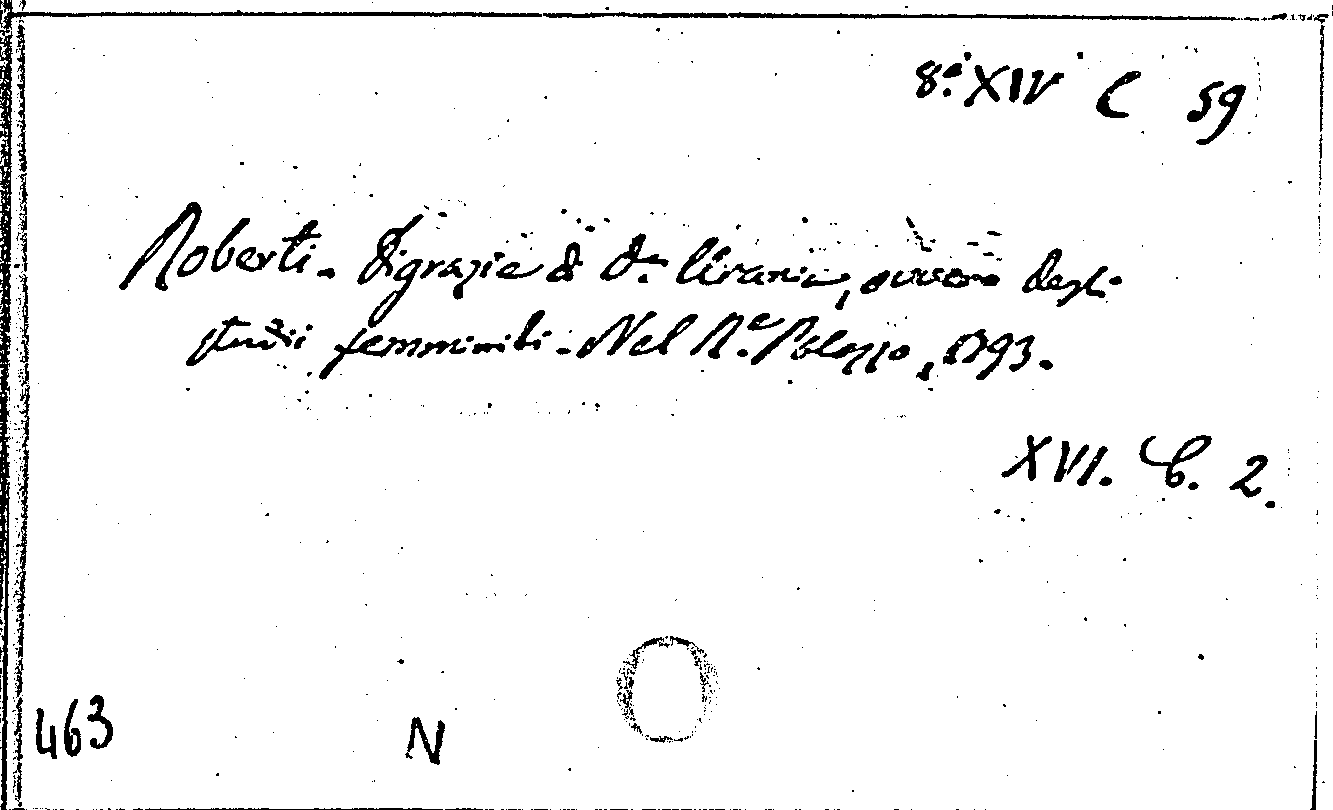 8.ª XIV C 59
Roberti. Disgrazie di D.ª Urania, ovvero degli
studii femminili. Nel R.e Palazzo, 1793.
XVI. C. 2.
463 N